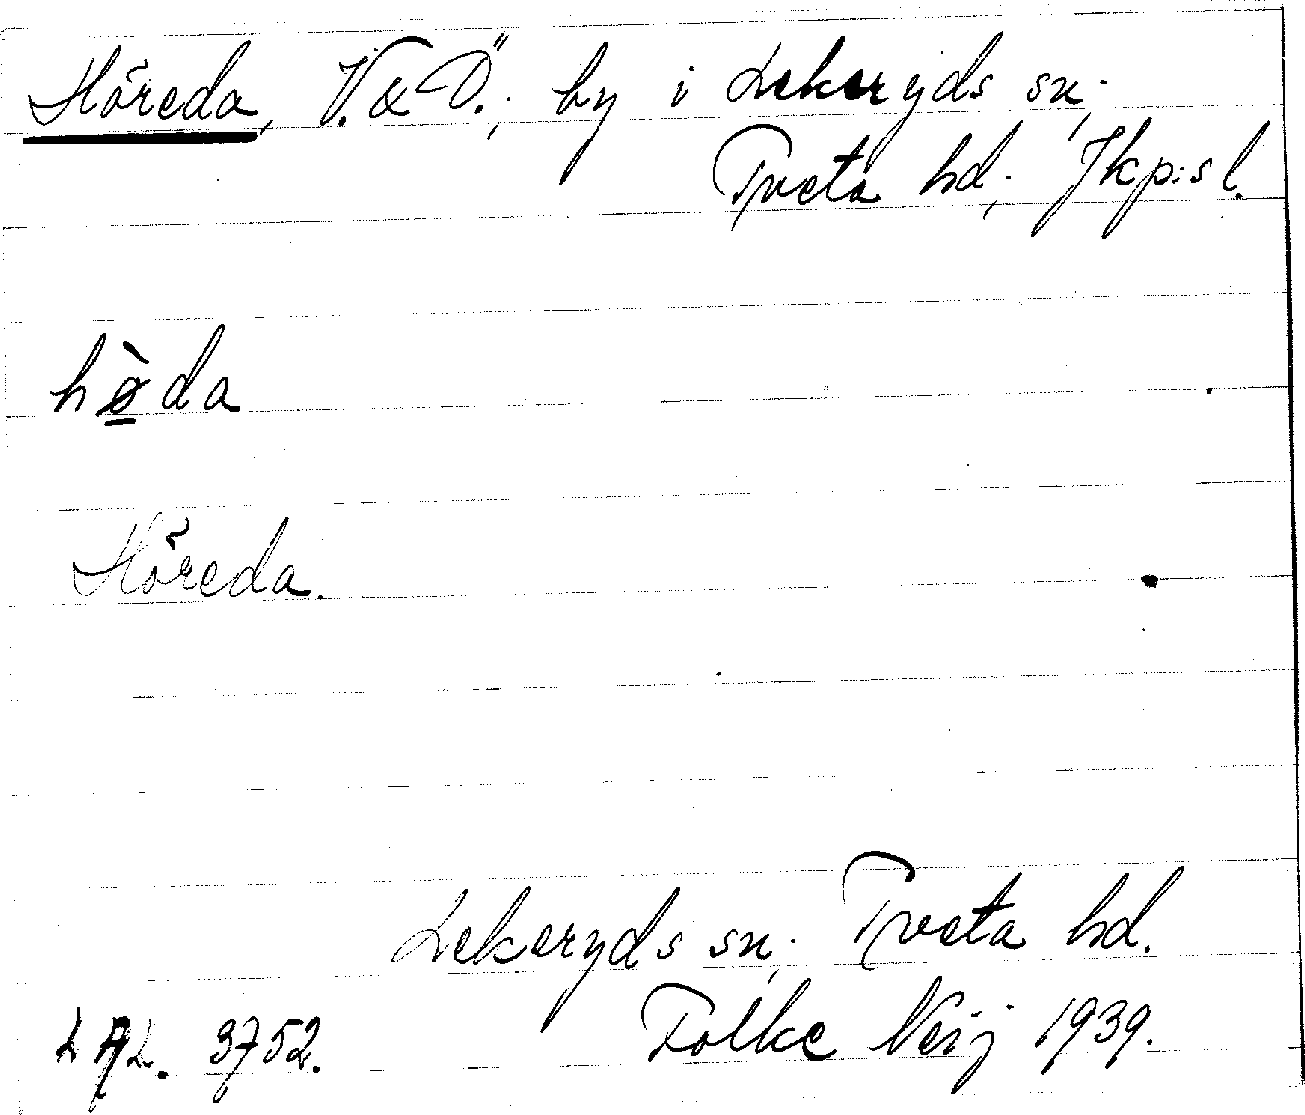 Höreda, V. & Ö., by i Lekeryds sn,
Tveta hd, Jkp:s l.
hø̀da
Höreda.
Lekeryds sn, Tveta hd.
LAL. 3752. Folke Neij 1939.